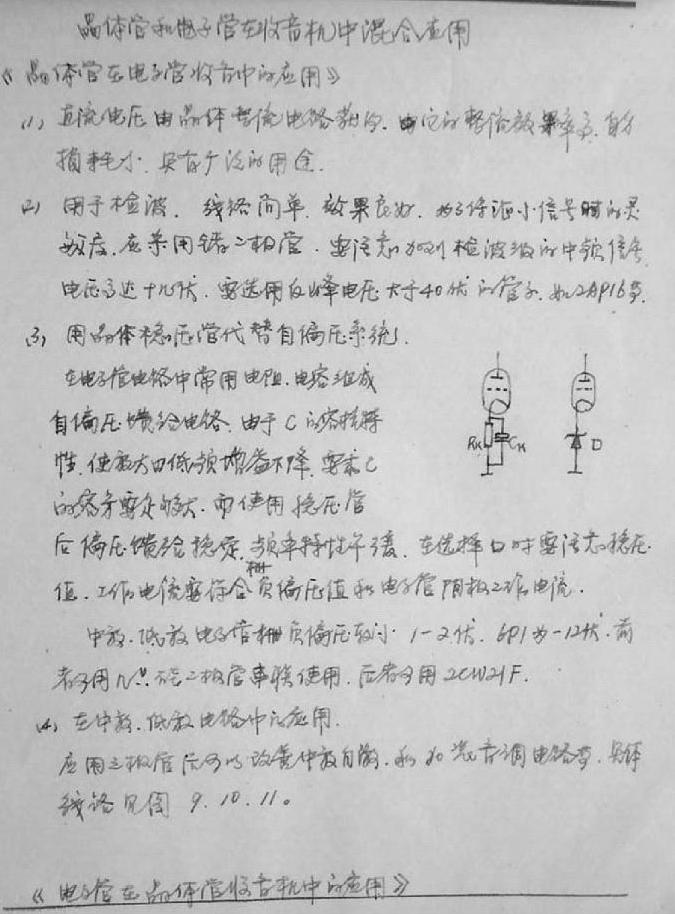 晶体管和电子管在收音机中混合应用
《晶体管在电子管收音中的应用》
(1) 直流电压由晶体整流电路供给. 由它的整流效率高. 自身
损耗小. 具有广泛的用途.
(2) 用于检波. 线路简单. 效果良好. 为了保证小信号时的灵
敏度. 应采用锗二极管. 要注意加到检波级的中频信号
电压高达十几伏. 要选用反峰电压大于40伏的管子. 如2AP16等.
(3) 用晶体稳压管代替自偏压系统.
在电子管电路中常用电阻. 电容组成
自偏压馈给电路. 由于C的容抗特
性. 使放大的低频增益下降. 要求C
的容量要足够大. 而使用稳压管
后偏压馈给稳定. 频率特性平缓. 在选择D时要注意稳压
值. 工作电流要符合栅负偏压值和电子管阴极工作电流.
中放. 低放电子管栅负偏压较小. 1-2伏. 6P1为-12伏. 前
者可用几只二极管串联使用. 后者可用2CW21F.
(4) 在中放. 低放电路中的应用.
应用三极管后可以改善中放自激. 和加装音调电路等. 具体
线路见图 9. 10. 11。
《电子管在晶体管收音机中的应用》
RK
CK
D